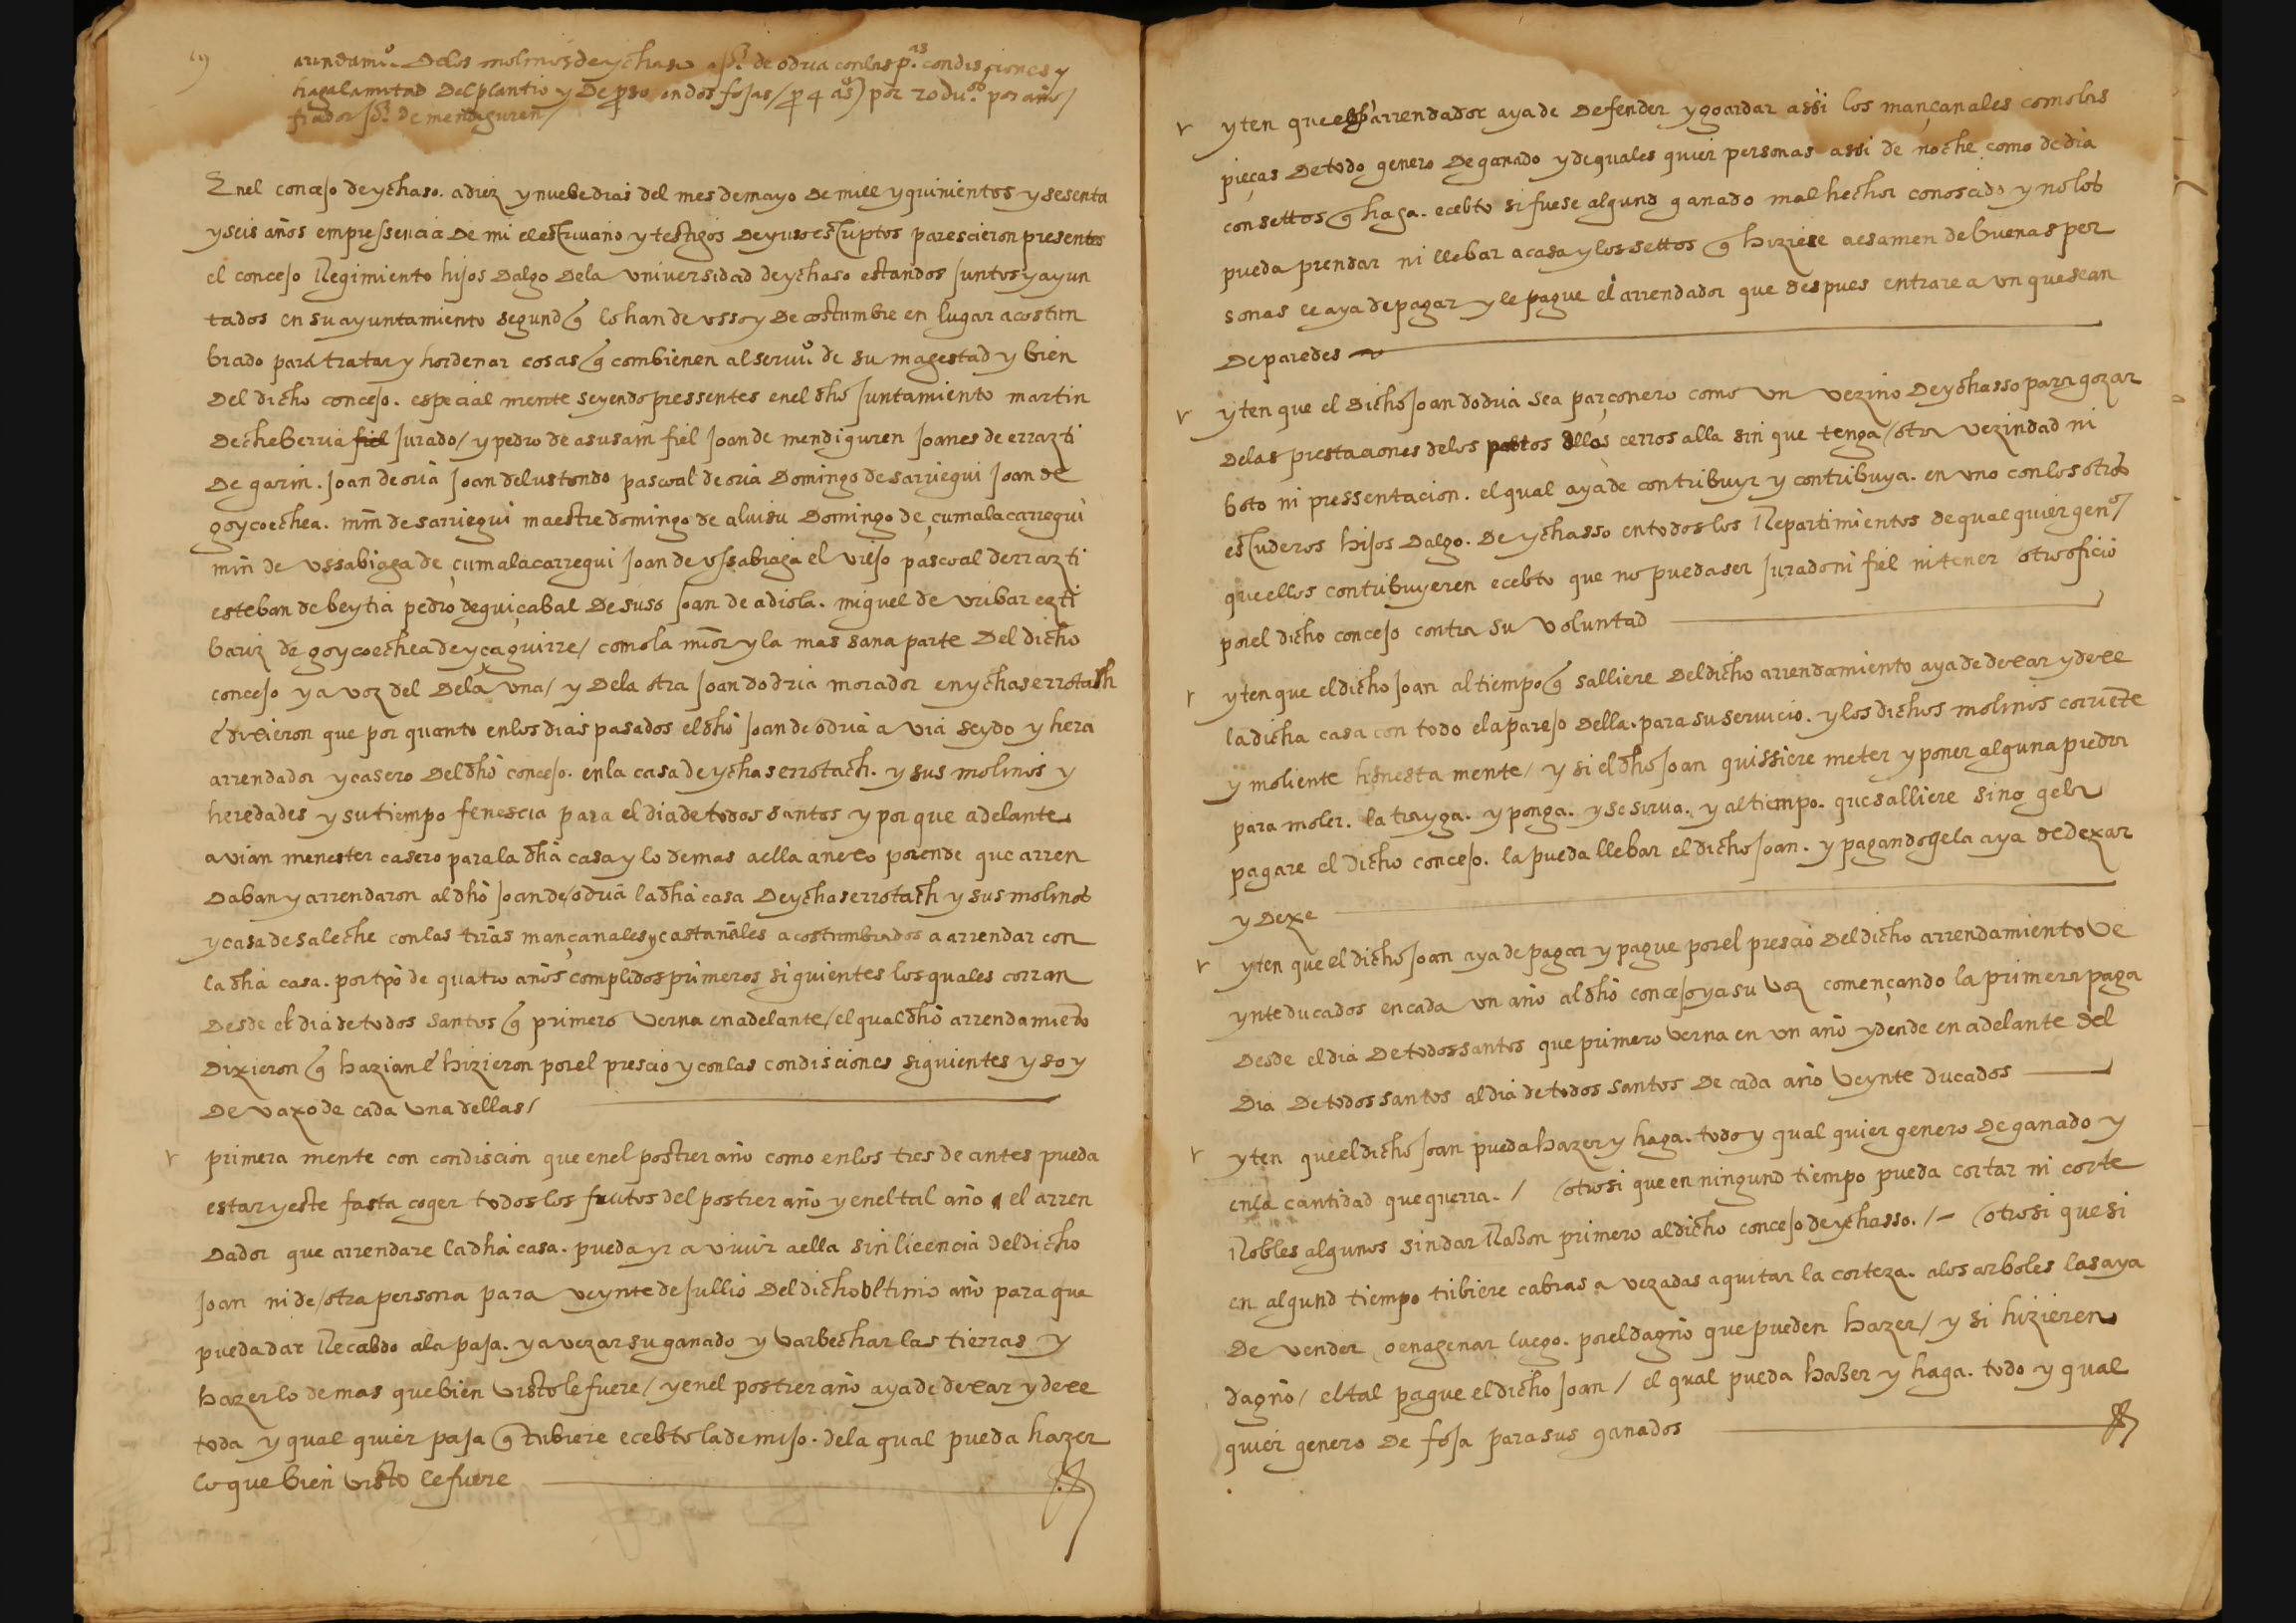 arrendamiº. Delos molinos de ychaso a Jº. de odria conlas p.as condisciones y
haga la mitad Del plantio y De preso en dos fojas / por 4 aºs) por 20 duºs por año /
fiador Jº. de mendiguren /
Enel concejo de ychaso. a diez y nuebe dias del mes de mayo De mill y quinientos y sesenta
y seis años en pressencia De mi el escriuano y testigos Deyuso escriptos parescieron presentes
el concejo Regimiento hijos Dalgo Dela Universidad de ychaso estandos juntos y ayun
tados en su ayuntamiento segund q̃ lo han de vsso y De costumbre en lugar acostun
brado para tratar y hordenar cosas q̃ combienen al seruiº. de su magestad y bien
Del dicho concejo. especial mente seyendo pressentes enel dho Juntamiento martin
De cheberria fiel Jurado / y pedro de asusain fiel Joan de mendiguren Joanes de errazti
De garin. Joan de oria Joan de lustondo pascoal de oria Domingo de sarriegui Joan de
goycoechea. mın de sarriegui maestre domingo de aluisu Domingo de çumalacarregui
mın de vssabiaga de çumalacarregui Joan de vssabiaga el viejo pascoal derrazti
esteban de beytia pedro de guiçabal De suso Joan de adiola. miguel de vribar ezti
bariz de goycoechea de yçaguirre / como la maor y la mas sana parte Del dicho
concejo y a voz del Dela vna / y Dela otra Joan dodria morador en ychaserrotach
e dixieron que por quanto enlos dias pasados el dho Joan de odria a via seydo y hera
arrendador y casero Del dho concejo. enla casa de ychaserrotach. y sus molinos y
heredades y su tiempo fenescia para el dia de todos santos y por que adelante
avian menester casero para la dha casa y lo demas a ella anexo porende que arren
Daban y arrendaron al dho Joan de odria la dha casa De ychaserrotach y sus molinos
y casa de saleche con las trãs mançanales y castañales acostumbrados a arrendar con
la dha casa. por tpõ de quatro años complidos primeros siguientes los quales corran
Desde el dia de todos santos q̃ primero verna en adelante / el qual dho arrendamiento
Dixieron q̃ hazian e hizieron por el prescio y con las condisciones siguientes y so y
De vaxo de cada vna dellas /
primera mente con condiscion que enel postrer año como enlos tres de antes pueda
estar y este fasta coger todos los frutos del postrer año y enel tal año el arren
Dador que arrendare la dha casa. pueda yr a viuir a ella sin licencia del dicho
Joan ni de otra persona para veynte de jullio Del dicho vltimo año para que
pueda dar Recabdo a la paja. y a vezar su ganado y varbechar las tierras y
hazer lo demas que bien visto le fuere / y enel postrer año aya de dexar y dexe
toda y qual quier paja q̃ tubiere ecebto la de mijo. dela qual pueda hazer
lo que bien visto le fuere
yten que el dho arrendador aya de Defender y goardar assi los mançanales como los
pieças De todo genero De ganado y de quales quier personas assi de noche como de dia
con settos q̃ haga. ecebto si fuese algund ganado mal hechor conoscido y no los
pueda prendar ni llebar a casa y los settos q̃ hiziese a esamen de buenas per
sonas le aya de pagar y le pague el arrendador que despues entrare a vn que sean
De paredes
yten que el Dicho Joan dodria sea parçonero como vn vezino De ychasso para gozar
Delas prestaciones delos pastos dellos cerros alla sin que tenga otra vezindad ni
boto ni pressentacion. el qual aya de contribuyr y contribuya. en vno con los otros
escuderos hijos Dalgo. De ychasso en todos los Repartimientos de qual quier genº /
que ellos contribuyeren ecebto que no pueda ser Jurado ni fiel ni tener otro oficio
por el dicho concejo contra su voluntad
yten que el dicho Joan al tiempo q̃ salliere Del dicho arrendamiento aya de dexar y dexe
la dicha casa con todo el aparejo Della. para su seruicio. y los dichos molinos corriẽte
y moliente honesta mente / y si el dho Joan quissiere meter y poner alguna piedra
para moler. la trayga. y ponga. y se sirua. y al tiempo. que salliere si no gela
pagare el dicho concejo. la pueda llebar el dicho Joan. y pagandogela aya de dexar
y Dexe
yten que el dicho Joan aya de pagar y pague por el prescio Del dicho arrendamiento ve
ynte ducados en cada vn año al dho concejo y a su voz començando la primera paga
Desde el dia De todos santos que primero verna en vn año y dende en adelante del
Dia De todos santos al dia de todos santos De cada año veynte ducados
yten que el dicho Joan pueda hazer y haga. todo y qual quier genero De ganado y
enla cantidad que querra. / otrosi que en ningund tiempo pueda cortar ni corte
Robles algunos sin dar Razon primero al dicho concejo de ychasso. /- otrosi que si
en algund tiempo tubiere cabras a vezadas a quitar la corteza. a los arboles las aya
De vender o enagenar luego. por el dagño que pueden hazer / y si hizieren
dagño / el tal pague el dicho Joan / el qual pueda hazer y haga. todo y qual
quier genero De foja para sus ganados